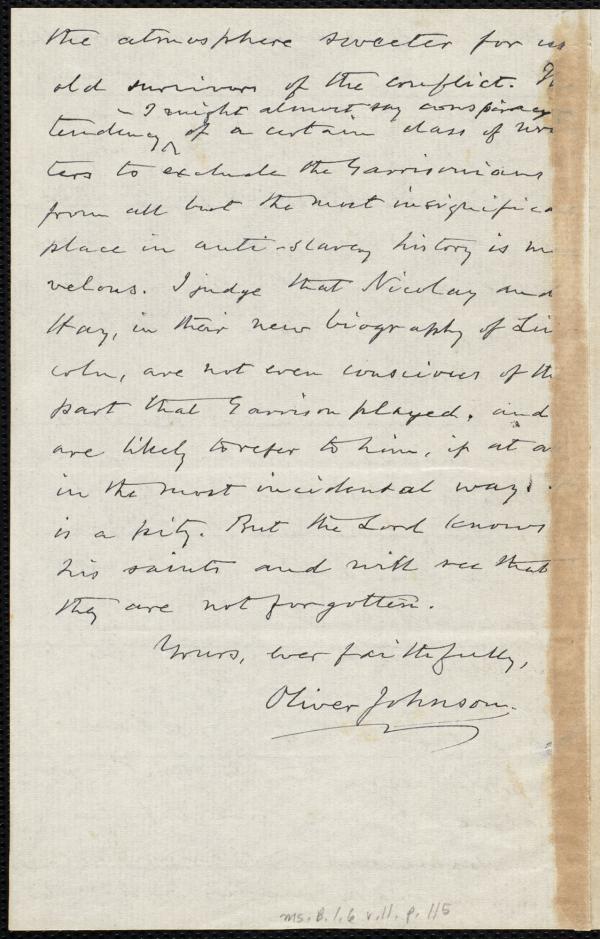 the atmosphere sweeter for us
old survivors of the conflict.
– I might almost say conspiracy
tendency ^ of a certain class of wri
ters to exclude the Garrisonians
from all but the most insignifica
place in anti-slavery history is m
velous. I judge that Nicolay and
Hay, in their new biography of Lin
coln, are not even conscious of th
part that Garrison played, and
are likely to refer to him, if at a
in the most incidental way.
is a pity. But the Lord knows
his saints and will see that
they are not forgotten.
Yours, ever faithfully,
Oliver Johnson.
ms. B. 1. 6 v. 11. p. 115